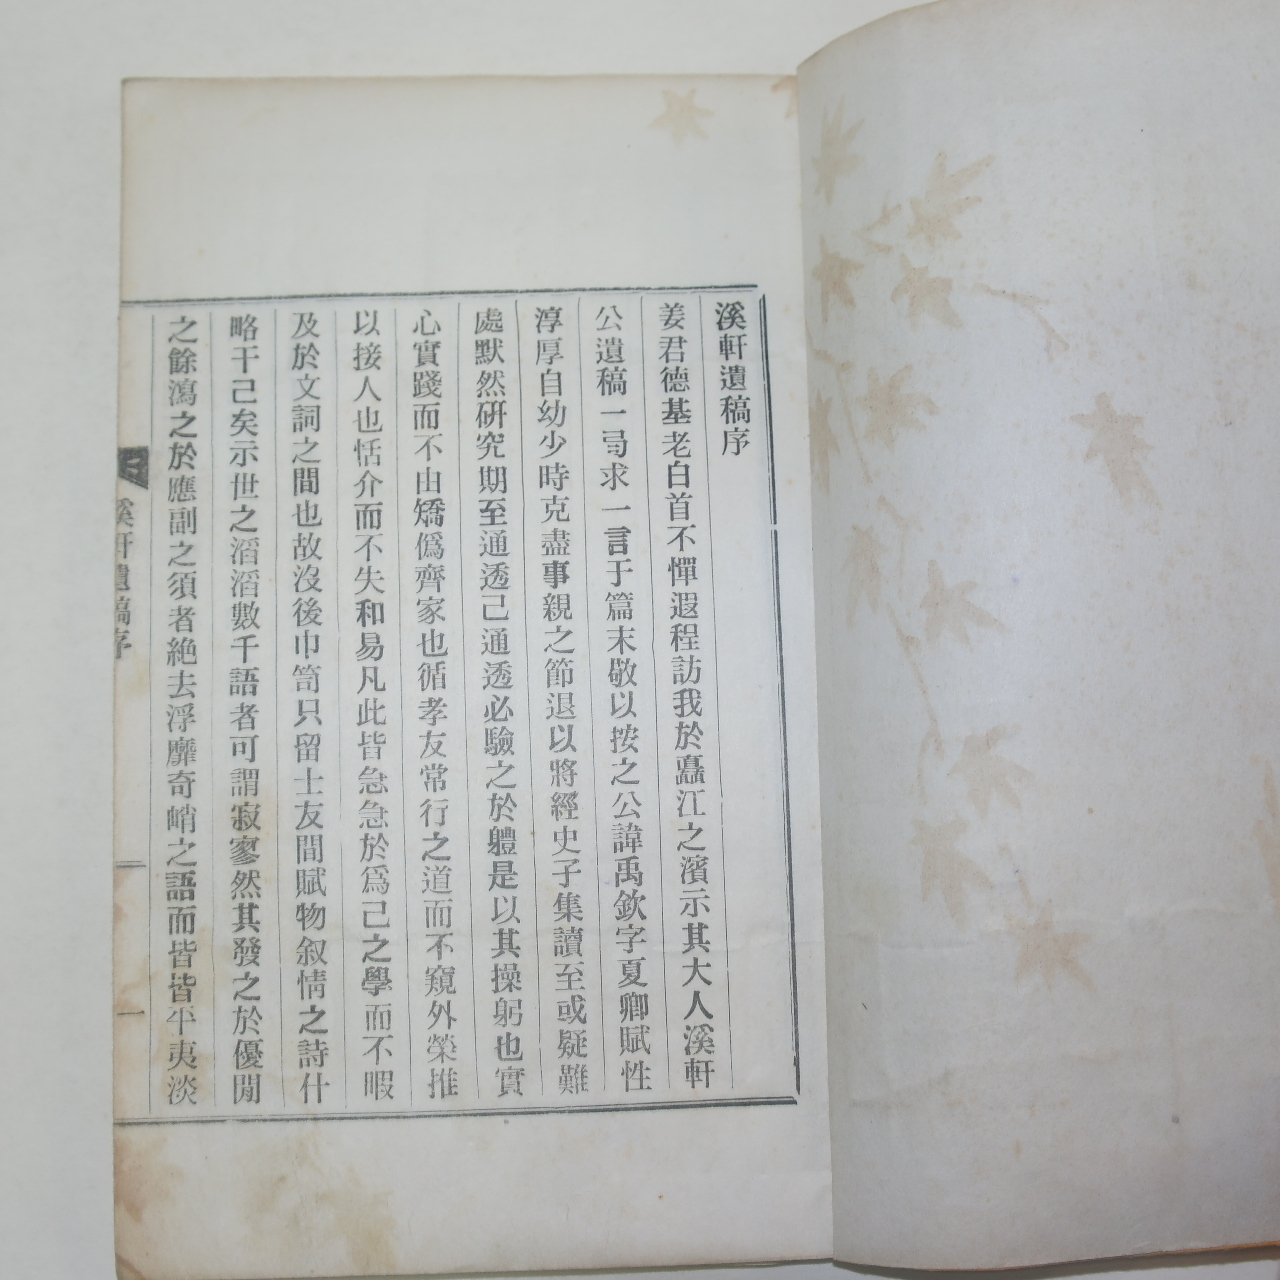 溪軒遺稿序
姜君德基老白首不憚遐程訪我於蠧江之濱示其大人溪軒
公遺稿一局求一言于篇末敬以按之公諱禹欽字夏卿賦性
淳厚自幼少時克盡事親之節退以將經史子集讀至或疑難
處默然硏究期至通透己通透必驗之於軆是以其操躬也實
心實踐而不由矯僞齊家也循孝友常行之道而不窺外榮推
以接人也恬介而不失和易凡此皆急急於爲己之學而不暇
及於文詞之間也故沒後巾笥只留士友間賦物叙情之詩什
略干己矣示世之滔滔數千語者可謂寂寥然其發之於優閒
之餘瀉之於應副之須者絶去浮靡奇峭之語而皆皆平夷淡
溪軒遺稿序
一